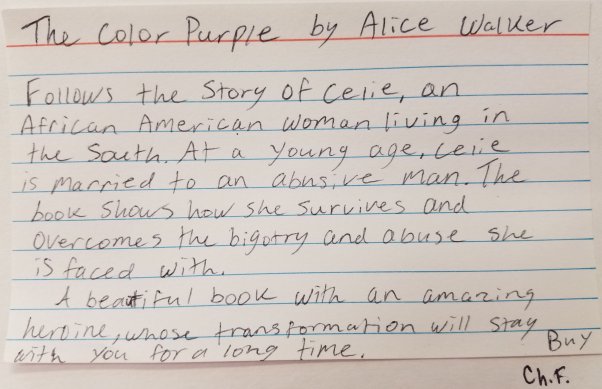 The Color Purple by Alice Walker
Follows the Story of Celie, an
African American woman living in
the South. At a young age, Celie
is married to an abusive man. The
book shows how she survives and
overcomes the bigotry and abuse she
is faced with.
A beautiful book with an amazing
heroine, whose transformation will stay
with you for a long time.
Buy
Ch.F.